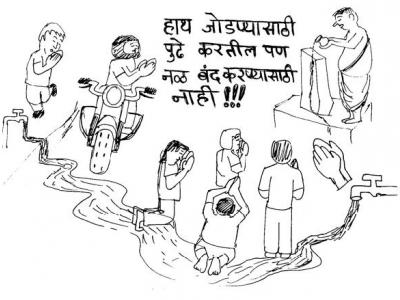 हाथ जोडण्यासाठी
पुढे करतील पण
नळ बंद करण्यासाठी
नाही !!!